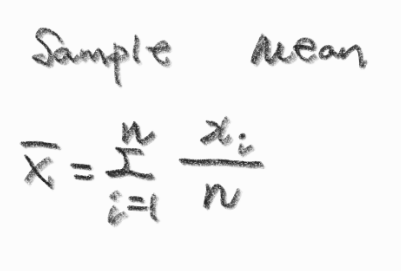 Sample Mean
x̄ = \sum_{i=1}^{n} \frac{x_i}{n}